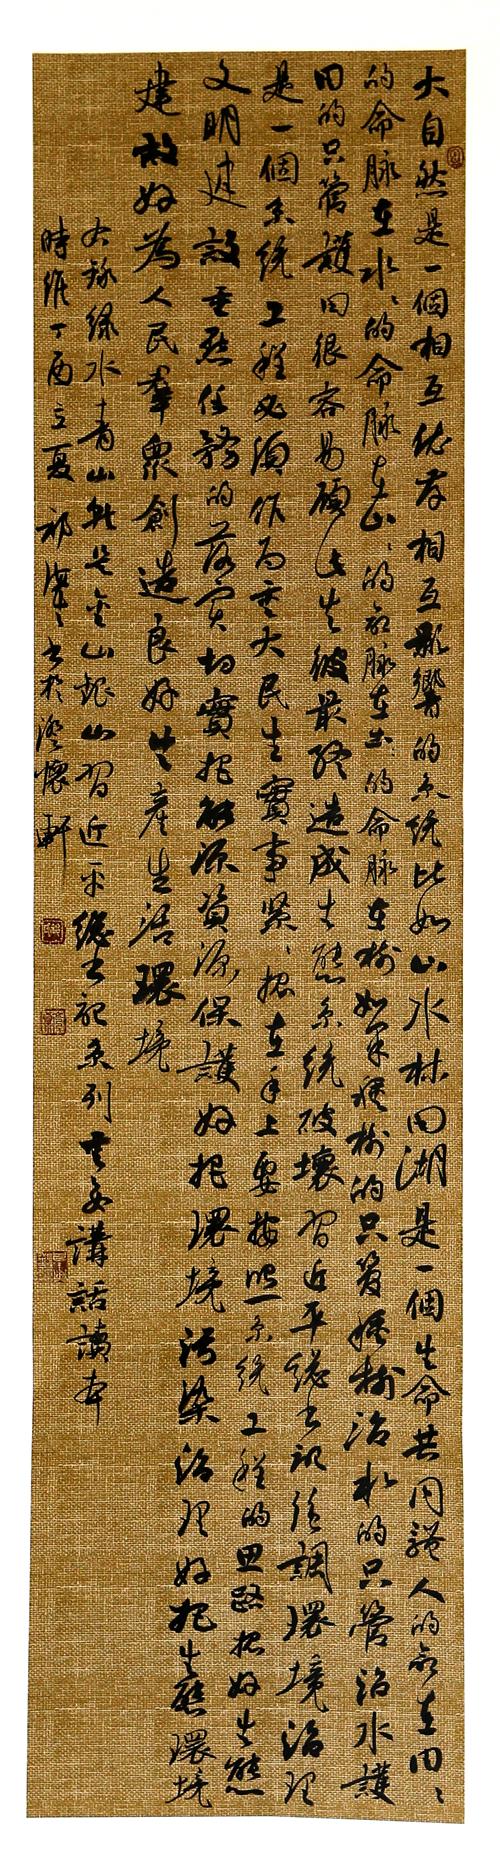 大自然是一個相互依存相互影響的系統比如山水林田湖是一個生命共同體人的命在田〻
的命脉在水〻的命脉在山〻的命脉在土〻的命脉在樹如果種樹的只管種樹治水的只管治水護
田的只管護田很容易顧此失彼最終造成生態系統破壞習近平總書記強調環境治理
是一個系統工程必須作為重大民生實事緊〻抓在手上要按照系統工程的思路抓好生態
文明建設重點任務的落實切實把能源資源保護好把環境污染治理好把生態環境
建設好為人民羣衆創造良好生產生活環境
右錄綠水青山就是金山銀山習近平總書記系列重要講話讀本
時維丁酉立夏書於澄懷軒